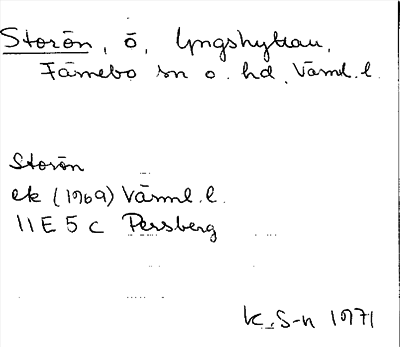 Storön, ö, Yngshyttan,
Färnebo sn o. hd, Värml. l.
Storön
ek (1969) Värml. l.
11E 5 c Persberg
K. S-n 1971